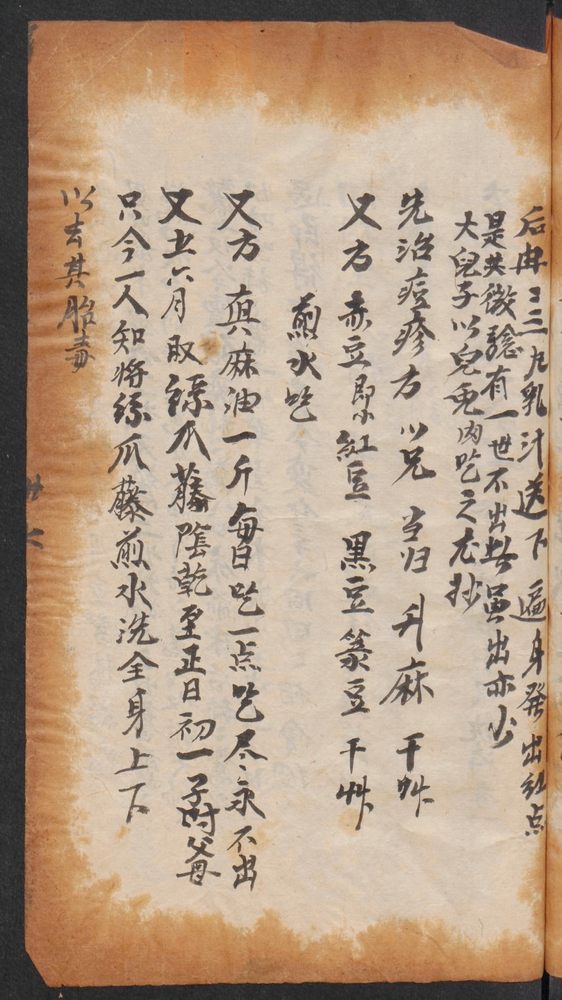 后毎三三丸乳汁送下遍身發出紅点
是其微騐有一世不出者虽出亦少
大兒子以兒兎肉吃之尤抄
先治痘疹方以兄当归升麻干艸
又方赤豆即小紅豆黑豆菉豆干艸
煎水吃
又方真麻油一斤每日吃一点吃尽永不出
又五六月取絲爪藤陰乾至正月初一子時父母
只今一人知将絲爪藤煎水洗全身上下
以去其胎毒